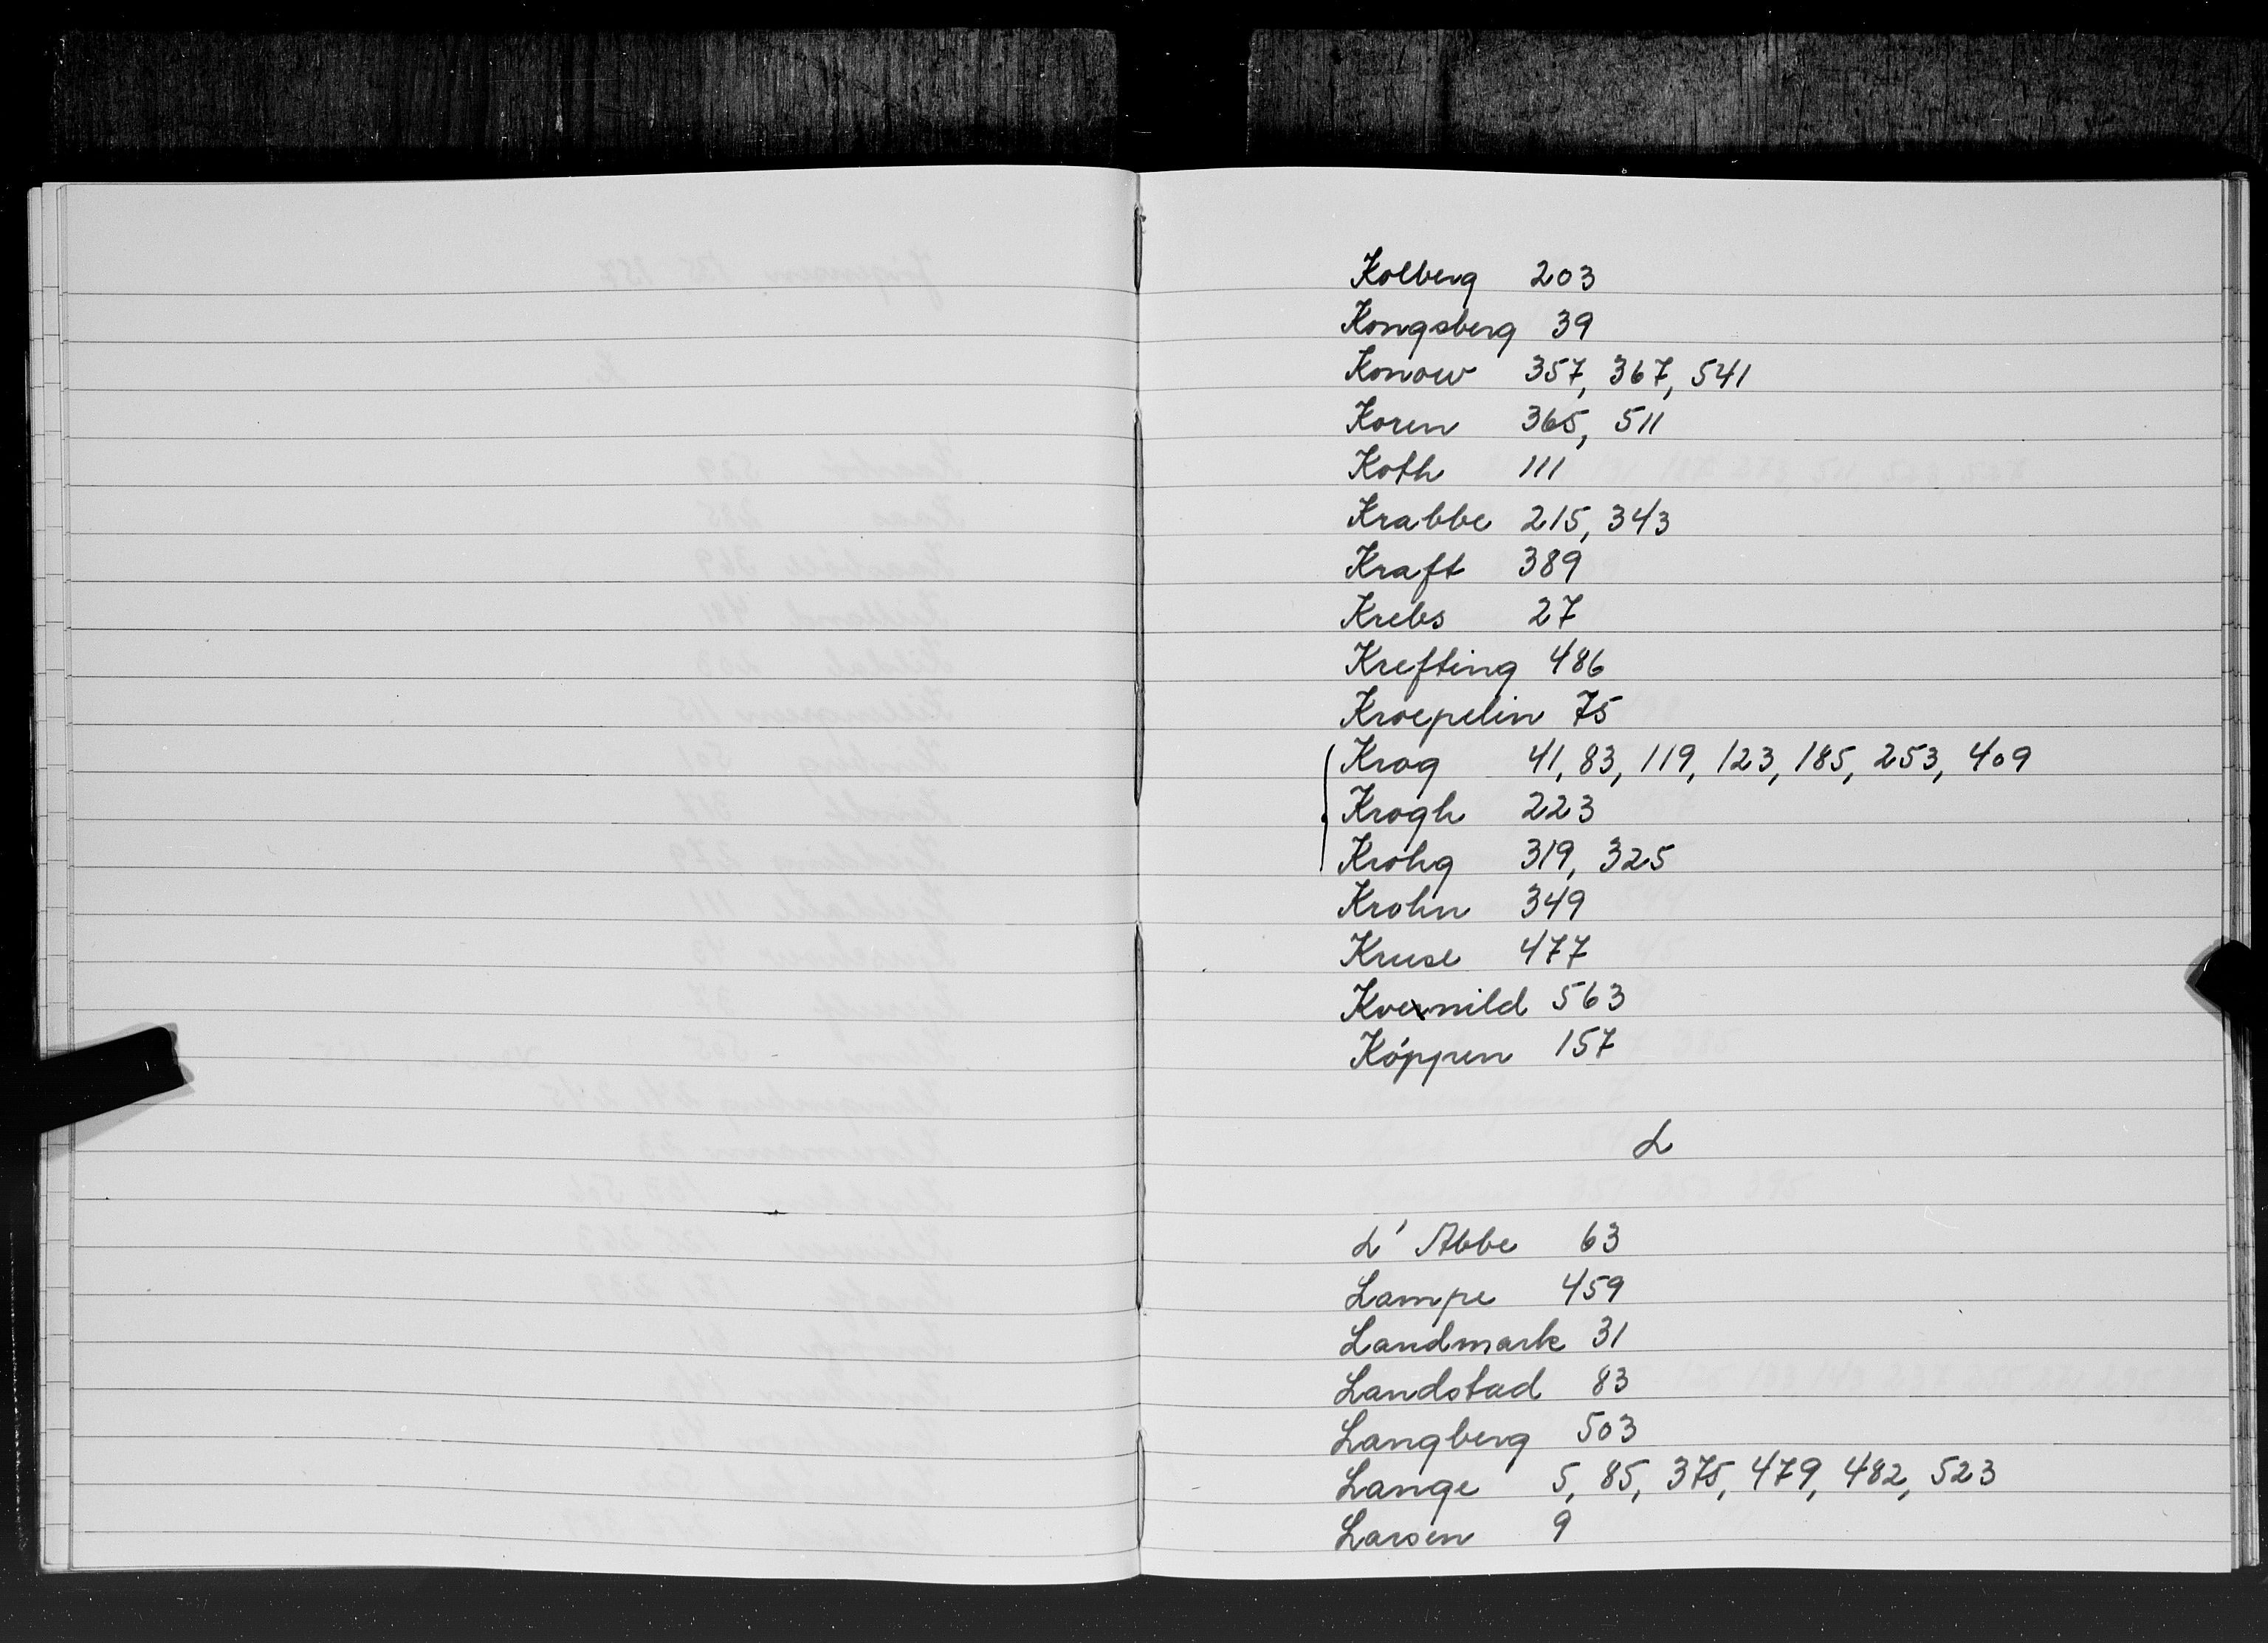 Kolberg 203
Kongsberg 39
Konow 357, 367, 541
Koren 365, 511
Koth 111
Krabbe 215, 343
Kraft 389
Krebs 27
Krefting 486
Kroepelin 75
Krog 41, 83, 119, 123, 185, 253, 409
Krogh 223
Krohg 319, 325
Krohn 349
Kruse 477
Kvernild 563
Köppen 157
L
L' Abbe 63
Lampe 459
Landmark 31
Landstad 83
Langberg 503
Lange 5, 85, 375, 479, 482, 523
Larsen 9